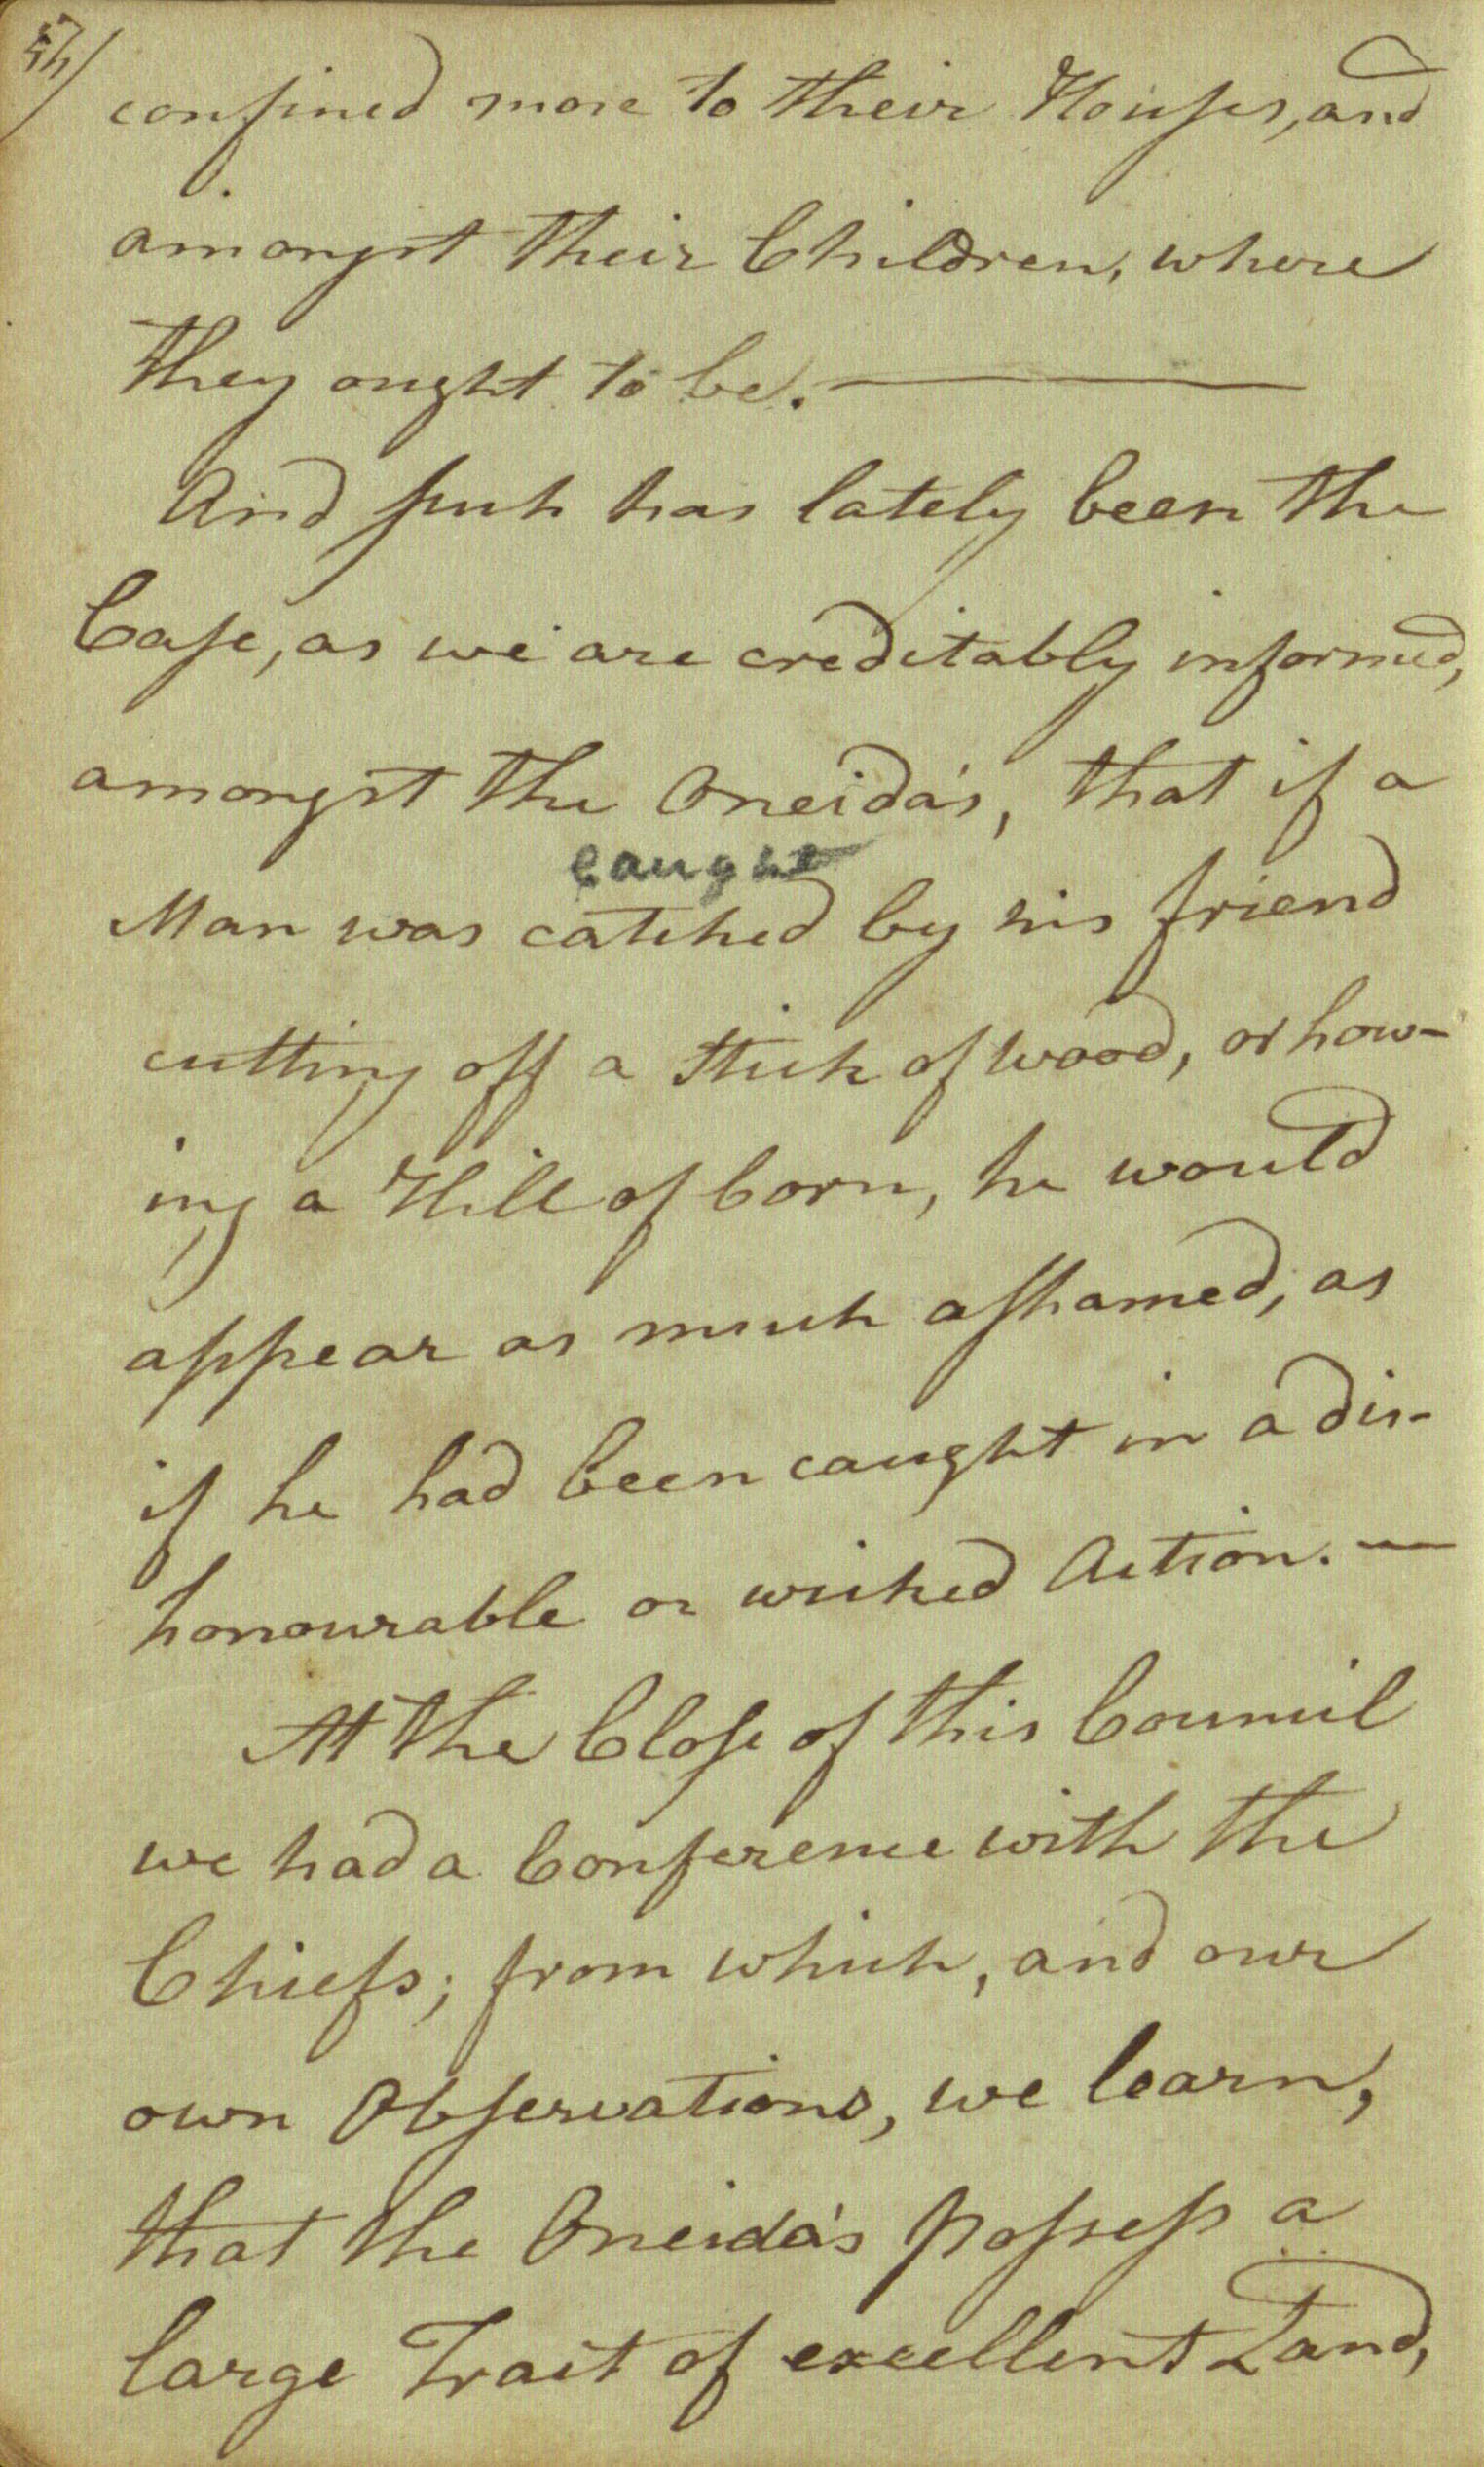 confined more to their Houses, and
amongst their Children, where
they ought to be. —
And such has lately been the
Case, as we are creditably informed,
amongst the Oneida's, that if a
caught
Man was catched by his friend
cutting off a stick of wood, or how-
ing a Hill of Corn, he would
appear as much ashamed, as
if he had been caught in a dis-
honourable or wicked Action. —
At the Close of this Council
we had a Conference with the
Chiefs; from which, and our
own Observations, we learn,
that the Oneida's possess a
large Tract of excellent Land,